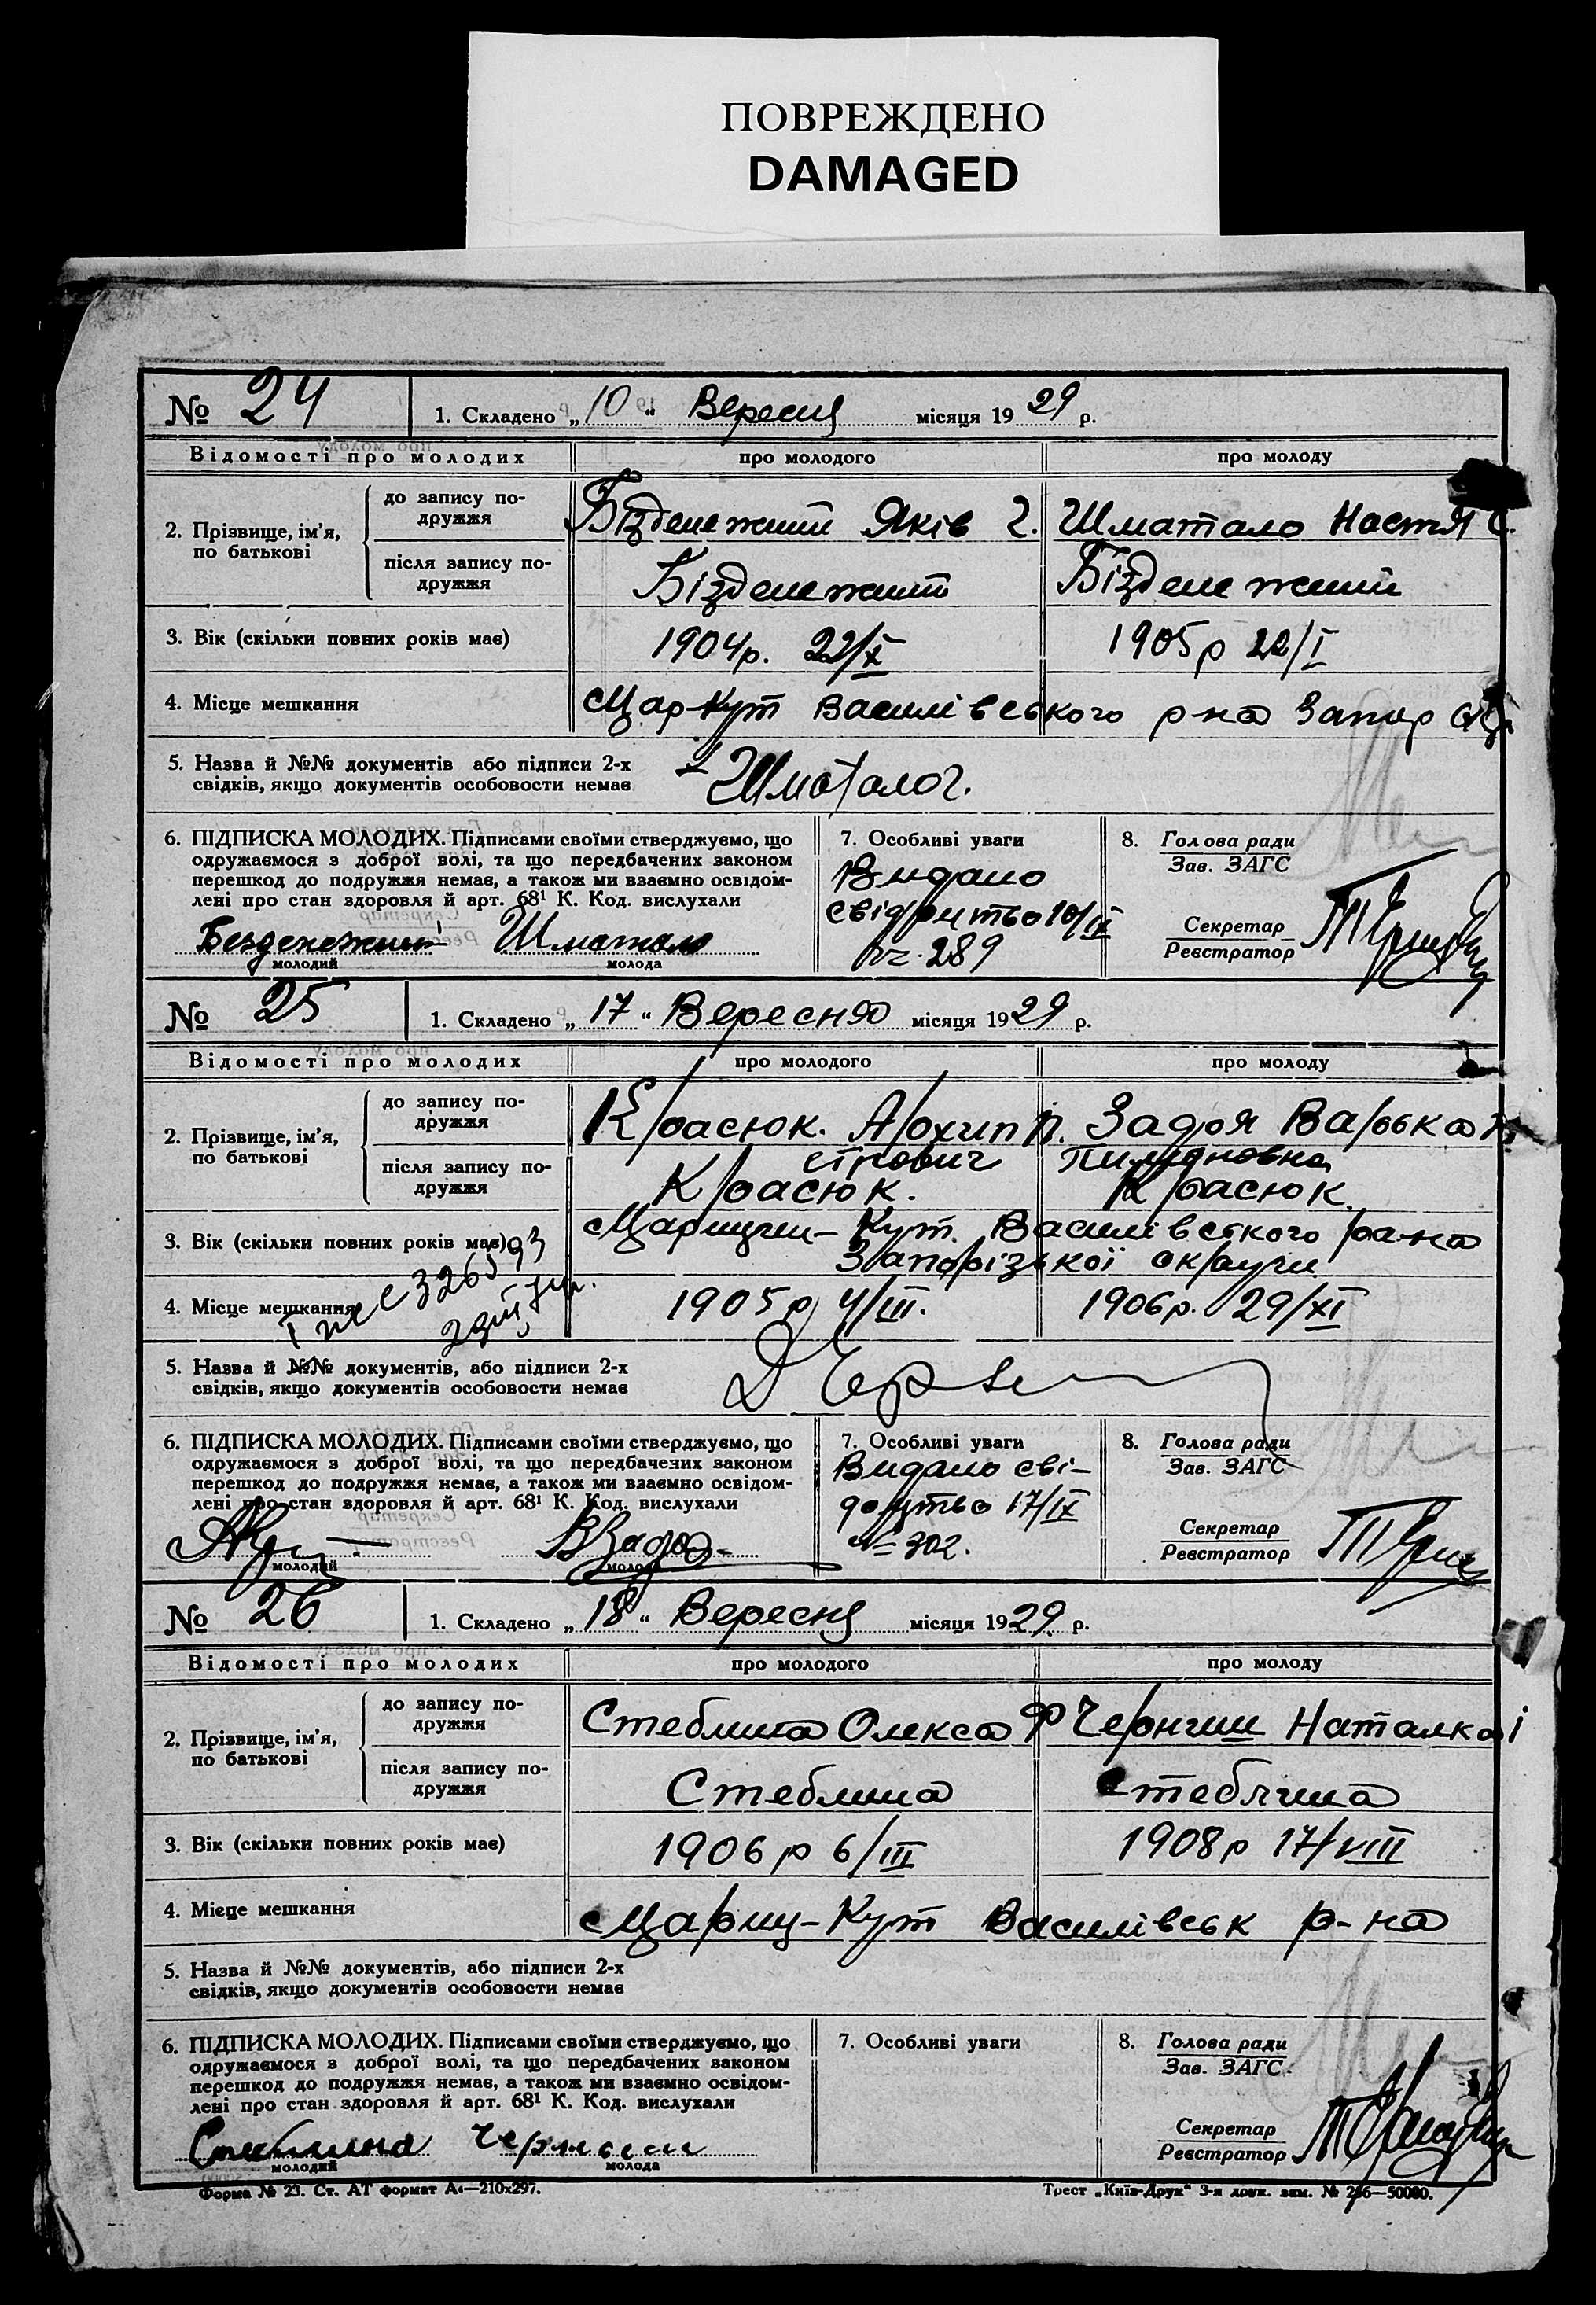 ПОВРЕЖДЕНО
DAMAGED
№ 24 1. Складено „10“ Вересня місяця 1929 р.
Відомості про молодих про молодого про молоду
2. Прізвище, ім’я, по батькові
до запису подружжя Бізденежний Яків Г. Шматало Настя С.
після запису подружжя Бізденежний Бізденежний
3. Вік (скільки повних років має) 1904р. 22/X 1905р 22/I
4. Місце мешкання Цар-Кут Василівського р-на Запор
5. Назва й №№ документів або підписи 2-х
свідків, якщо документів особовости немає
6. ПІДПИСКА МОЛОДИХ. Підписами своїми стверджуємо, що
одружаємося з доброї волі, та що передбачених законом
перешкод до подружжя немає, а також ми взаємно освідом-
лені про стан здоровля й арт. 68¹ К. Код. вислухали
Безденежний Шматало
молодий молода
7. Особливі уваги
Видано
свідоцтво 10/IX
№ 289
8. Голова ради
Зав. ЗАГС
Секретар
Реєстратор
№ 25 1. Складено „17“ Вересня місяця 1929 р.
Відомості про молодих про молодого про молоду
2. Прізвище, ім’я, по батькові
до запису подружжя Красюк. Архип П. Задоя Варька
етрович Пилиповна
після запису подружжя Красюк. Красюк
3. Вік (скільки повних років має) Царицин-Кут. Василівського ра-на
Запорізької округи
4. Місце мешкання 1905р 4/III. 1906р. 29/XI
326593
5. Назва й №№ документів, або підписи 2-х
свідків, якщо документів особовости немає
6. ПІДПИСКА МОЛОДИХ. Підписами своїми стверджуємо, що
одружаємося з доброї волі, та що передбачених законом
перешкод до подружжя немає, а також ми взаємно освідом-
лені про стан здоровля й арт. 68¹ К. Код. вислухали
ВЗадоя
молодий молода
7. Особливі уваги
Видано сві-
доцтво 17/IX
№ 302.
8. Голова ради
Зав. ЗАГС
Секретар
Реєстратор
№ 26 1. Складено „18“ Вересня місяця 1929. р.
Відомості про молодих про молодого про молоду
2. Прізвище, ім’я, по батькові
до запису подружжя Стеблина Олекса Ф Чернгин Наталка і
після запису подружжя Стеблина Стеблина
3. Вік (скільки повних років має) 1906р 6/III 1908р 17/VIII
4. Місце мешкання Цариц-Кут Василівськ р-на
5. Назва й №№ документів, або підписи 2-х
свідків, якщо документів особовости немає
6. ПІДПИСКА МОЛОДИХ. Підписами своїми стверджуємо, що
одружаємося з доброї волі, та що передбачених законом
перешкод до подружжя немає, а також ми взаємно освідом-
лені про стан здоровля й арт. 68¹ К. Код. вислухали
Стеблина
молодий молода
7. Особливі уваги
8. Голова ради
Зав. ЗАГС
Секретар
Реєстратор
Форма № 23. Ст. АТ формат А4—210x297. Трест „Київ-Друк“ 3-я друк. зам. № 266—50000.